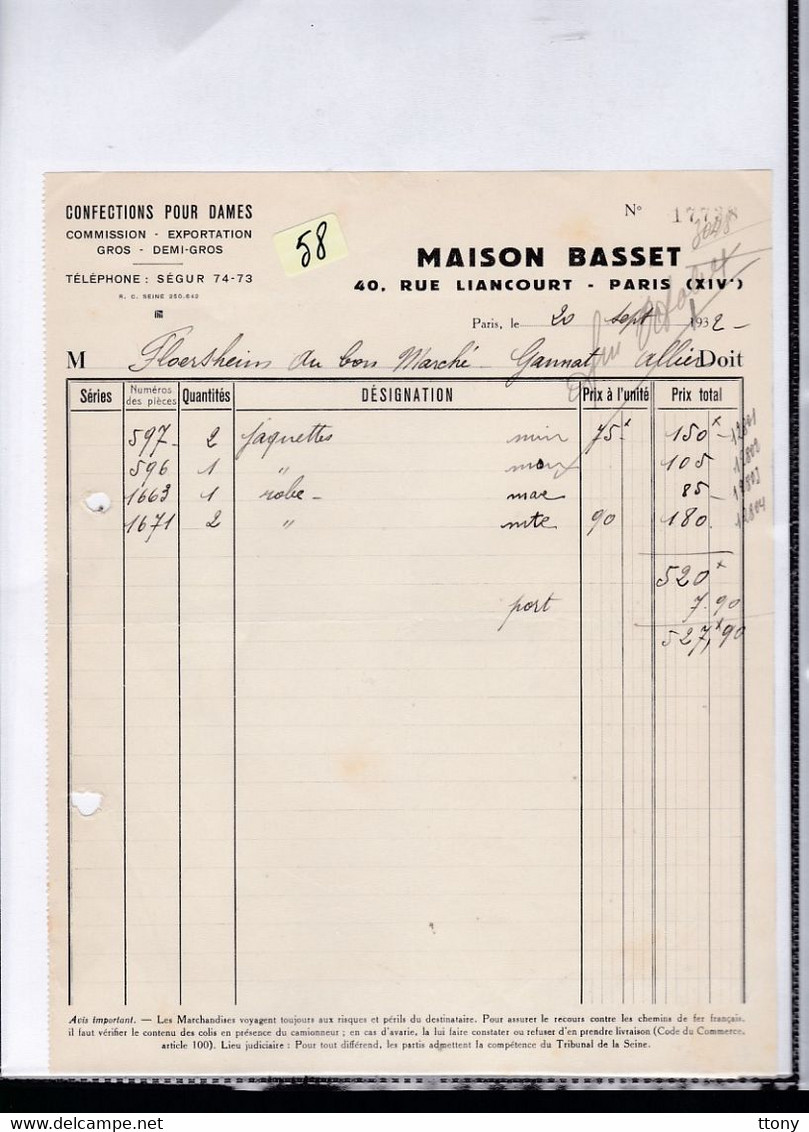 CONFECTIONS POUR DAMES
COMMISSION - EXPORTATION
GROS - DEMI-GROS
TÉLÉPHONE : SÉGUR 74-73
R. C. SEINE 250.642
58
N° 17738
3048
MAISON BASSET
40, RUE LIANCOURT - PARIS (XIVe)
Paris, le 20 Sept 1932-
M Floersheim au bon Marché - Gannat Allier Doit
Séries Numéros des pièces Quantités DÉSIGNATION Prix à l'unité Prix total
597 - 2 Jaquettes 75 150 - 12801
596 1 " 105 12802
1663 1 robe - 85 - 12803
1671 2 " 90 180 12804
520
port 7.90
527,90
Avis important. — Les Marchandises voyagent toujours aux risques et périls du destinataire. Pour assurer le recours contre les chemins de fer français,
il faut vérifier le contenu des colis en présence du camionneur ; en cas d'avarie, la lui faire constater ou refuser d'en prendre livraison (Code du Commerce,
article 100). Lieu judiciaire : Pour tout différend, les partis admettent la compétence du Tribunal de la Seine.
ttony